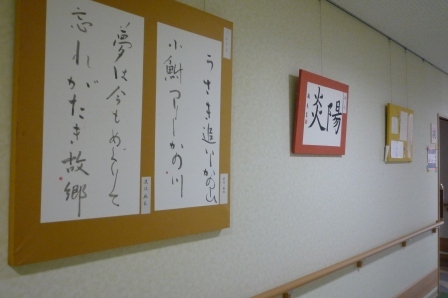 うさぎ追いしかの山
小鮒つりしかの川
夢は今もめぐりて
忘れがたき故郷
陽炎